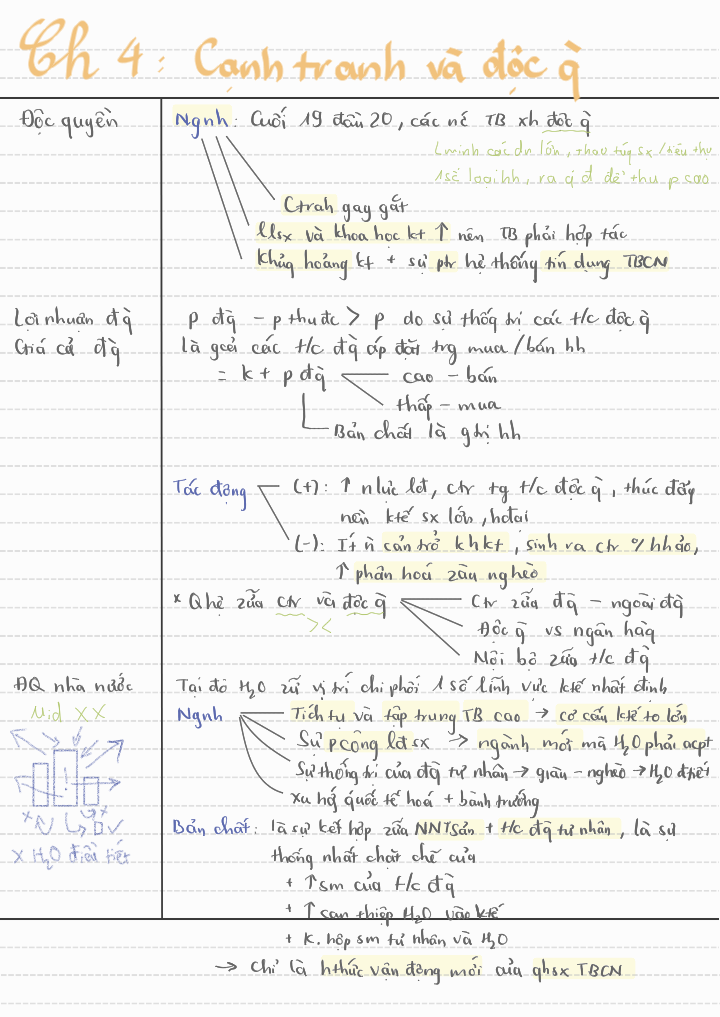 Ch 4: Cạnh tranh và độc q̀
Độc quyền
Ngnh: Cuối 19 đầu 20, các nc TB xh độc q̀
L minh các dn lớn, thâu tóm sx/tiêu thụ
1 số loại hh, ra q đ để thu p cao
Ctrah gay gắt
llsx và khoa học kt ↑ nên TB phải hợp tác
Khủg hoảng kt + sự ptr hệ thống tín dụng TBCN
Lợi nhuận đq̀
p đq̀ - p thu đc > p do sự thốg trị các t/c độc q̀
Giá cả đq̀
là gcả các t/c đq̀ áp đặt trg mua/bán hh
= k + p đq̀
cao - bán
thấp - mua
Bản chất là gtrị hh
Tác động
(+): ↑ nlực lđ, ctr tg t/c độc q̀, thúc đẩy
nền ktế sx lớn, hđại
(-): Ít ñ cản trở khkt, sinh ra ctr % hhảo,
↑ phân hoá zàu nghèo
* Qhệ zữa ctr và độc q̀
><
Ctr zữa đq̀ - ngoài đq̀
Độc q̀ vs ngân hàg
Nội bộ zữa t/c đq̀
ĐQ nhà nước
Tại đó H₂O zữ vị trí chi phối 1 số lĩnh vực ktế nhất định
Mid XX
Ngnh
Tích tụ và tập trung TB cao → cơ cấu ktế to lớn
Sự pcông lđ sx → ngành mới mà H₂O phải acpt
Sự thống trị của đq tư nhân → giàu - nghèo → H₂O đtiết
xu hg quốc tế hoá + bành trướng
x N
x H₂O điều tiết
Bản chất: là sự kết hợp zữa NNTSản + t/c đq tư nhân, là sự
thống nhất chặt chẽ của
+ ↑ sm của t/c đq̀
+ ↑ can thiệp H₂O vào ktế
+ k. hợp sm tư nhân và H₂O
→ Chỉ là hthức vận động mới của qhsx TBCN